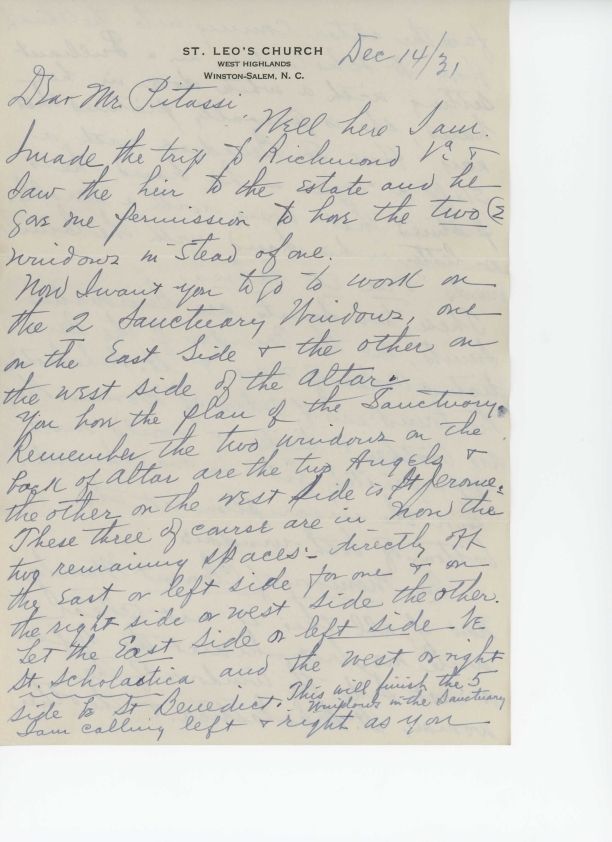 ST. LEO'S CHURCH
WEST HIGHLANDS
WINSTON-SALEM, N. C.
Dec 14/31
Dear Mr. Pitassi
Well here I am.
I made the trip to Richmond Va. &
saw the heir to the estate and he
gave me permission to have the two (2
windows in stead of one.
Now I want you to go to work on
the 2 Sanctuary Windows, one
on the East Side & the other on
the west side of the Altar.
You have the plan of the Sanctuary.
Remember the two windows on the
back of Altar are the two Angels &
the other on the west side is St Jerome.
These three of course are in. Now the
two remaining spaces - directly off
the East or left side for one & on
the right side or west side the other.
Let the East side or left side be
St. Scholactica and the west or right
side be St Benedict. This will finish the 5
windows in the Sanctuary
I am calling left & right as you